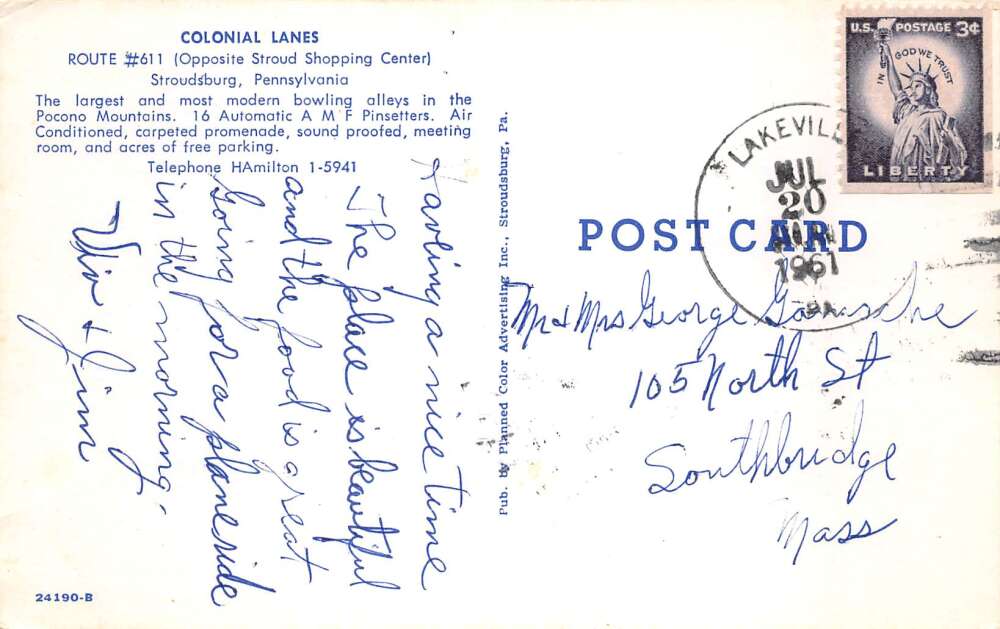 COLONIAL LANES
ROUTE #611 (Opposite Stroud Shopping Center)
Stroudsburg, Pennsylvania
The largest and most modern bowling alleys in the
Pocono Mountains. 16 Automatic A M F Pinsetters. Air
Conditioned, carpeted promenade, sound proofed, meeting
room, and acres of free parking.
Telephone HAmilton 1-5941
Having a nice time
The place is beautiful
and the food is great
Going for a plane ride
in the morning.
Vio & Jim
24190-B
Pub. by Planned Color Advertising Inc., Stroudsburg, Pa.
U.S. POSTAGE 3¢
IN GOD WE TRUST
LIBERTY
LAKEVILL
JUL
20
1961
PA.
POST CARD
Mr & Mrs George
105 North St
Southbridge
Mass